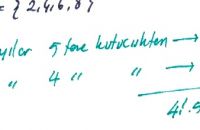 = { 2,4,6,8 }
yılar 5 tane kutucuktan →
" 4 " " →
4! 5